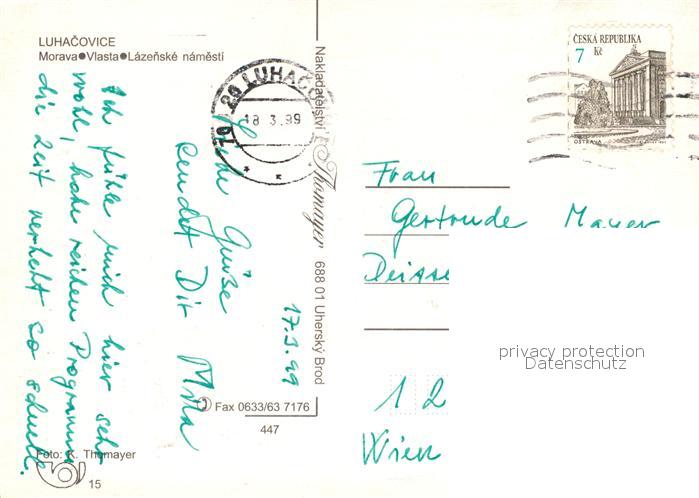 LUHAČOVICE
Morava●Vlasta●Lázeňské náměstí
Ich fühle mich hier sehr
wohl, habe reichen Programm
die Zeit verheht so schnell.
Liebe Grüße
sendet Dir
17.3.99
Nakladatelství Thomayer 688 01 Uherský Brod
Fax 0633/63 7176
447
Foto: K. Thomayer
15
20 LUHAČO
18.3.99
ČESKÁ REPUBLIKA
7 Kč
OSTRAVA
Frau
Gertrude Mayer
1 2
Wien
privacy protection
Datenschutz